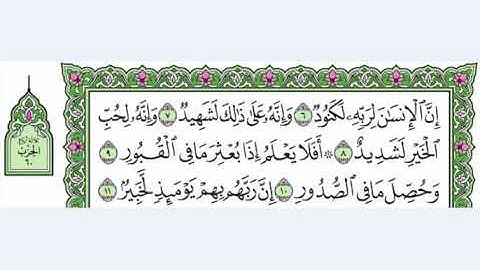 إِنَّ ٱلْإِنسَٰنَ لِرَبِّهِۦ لَكَنُودٌ ٦ وَإِنَّهُۥ عَلَىٰ ذَٰلِكَ لَشَهِيدٌ ٧ وَإِنَّهُۥ لِحُبِّ
ٱلْخَيْرِ لَشَدِيدٌ ٨ ۞ أَفَلَا يَعْلَمُ إِذَا بُعْثِرَ مَا فِى ٱلْقُبُورِ ٩
وَحُصِّلَ مَا فِى ٱلصُّدُورِ ١٠ إِنَّ رَبَّهُم بِهِمْ يَوْمَئِذٍ لَّخَبِيرٌۢ ١١
الحزب
٦٠